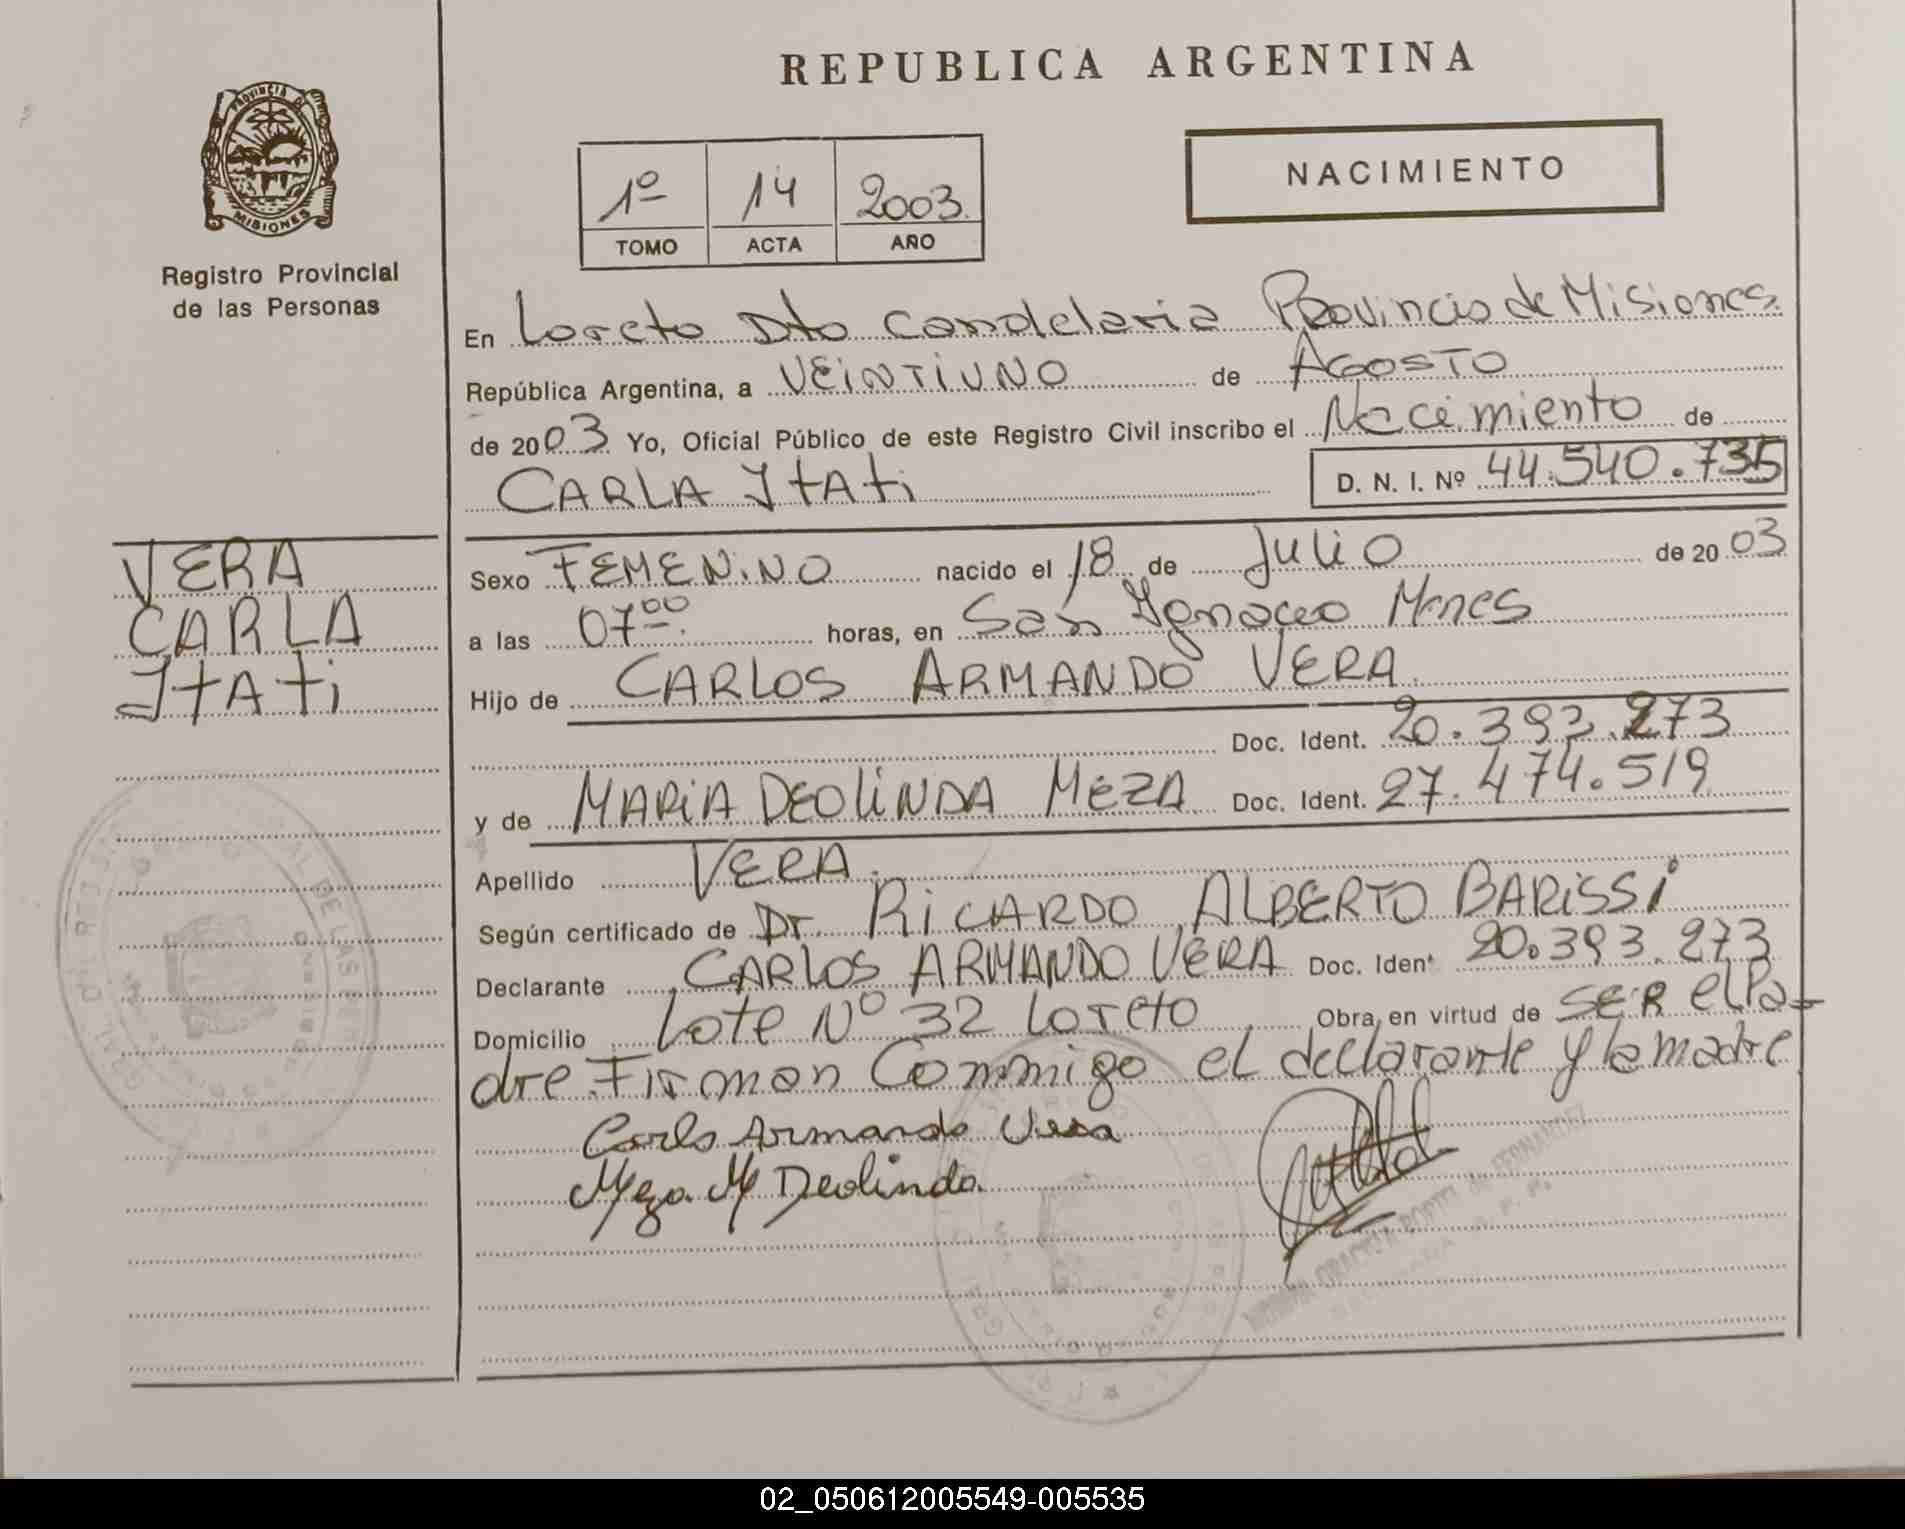 REPUBLICA ARGENTINA
PROVINCIA DE
MISIONES
Registro Provincial
de las Personas
1º 14 2003.
TOMO ACTA AÑO
NACIMIENTO
En Loreto Dto Candelaria Provincia de Misiones.
República Argentina, a VEINTIUNO de AGOSTO
de 2003 Yo, Oficial Público de este Registro Civil inscribo el Nacimiento de
CARLA ItAti D. N. I. Nº 44.540.735
VERA
CARLA
ItAti
Sexo FEMENINO nacido el 18 de Julio de 2003
a las 07 00. horas, en San Ignacio Mnes
Hijo de CARLOS ARMANDO VERA.
Doc. Ident. 20.393.273
y de MARIA DEOLINDA MEZA Doc. Ident. 27.474.519
Apellido VERA.
Según certificado de Dr. RICARDO ALBERTO BARISSI
Declarante CARLOS ARMANDO VERA Doc. Ident 20.393.273
Domicilio Lote Nº 32 Loreto Obra, en virtud de SER el Pa-
dre. Firman Commigo el declarante y la madre
Carlo Armando Vera
Meza M Deolinda.
DE FERNANDEZ
02_050612005549-005535